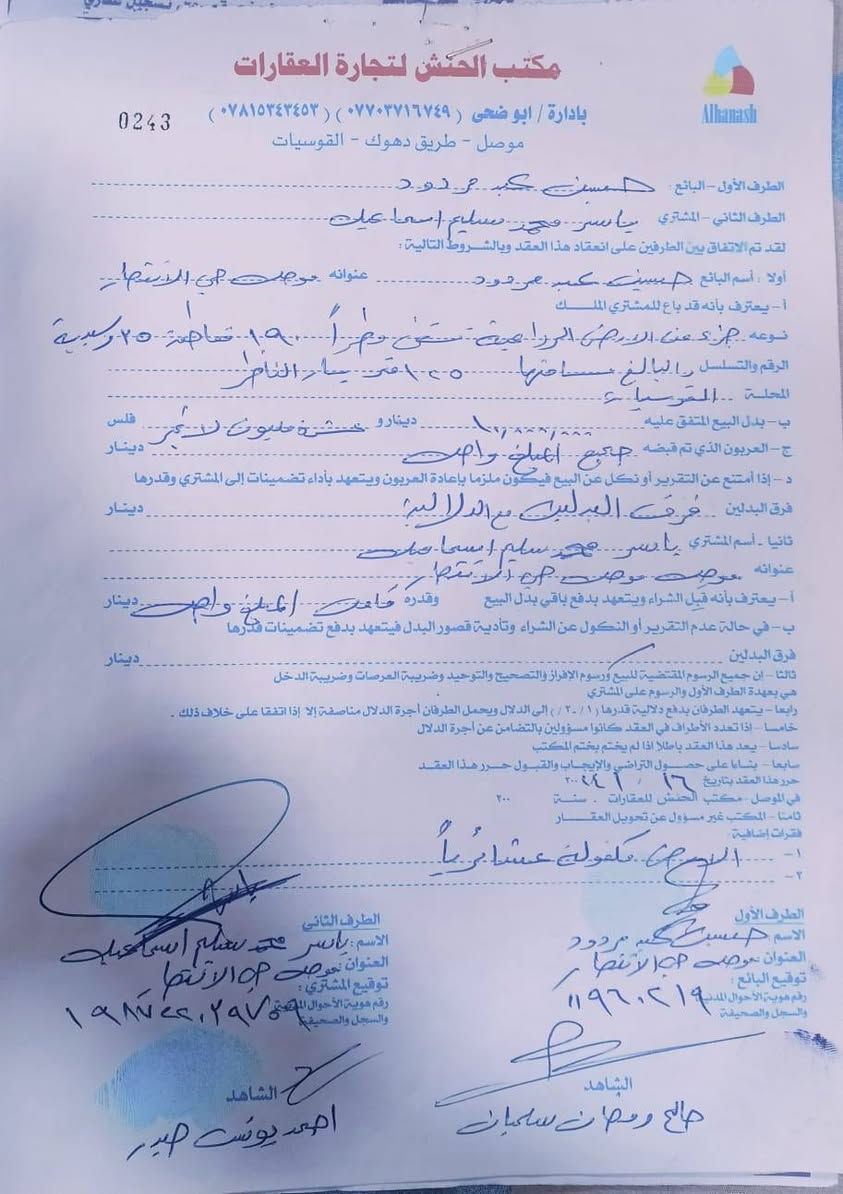 مكتب الحنش لتجارة العقارات
Alhanash
بادارة / ابو ضحى (٠٧٧٠٣٧١٦٧٤٩) (٠٧٨١٥٣٤٣٤٥٣)
0243
موصل - طريق دهوك - القوسيات
الطرف الأول - البائع: حسين عبد مردود
الطرف الثاني - المشتري ياسر محمد سليم اسماعيل
لقد تم الاتفاق بين الطرفين على انعقاد هذا العقد وبالشروط التالية:
أولا: أسم البائع حسين عبد مردود عنوانه موصل حي الانتصار
أ - يعترف بأنه قد باع للمشتري الملك
نوعه جزء من الارض الزراعية ١٩٠ مقاطعة ٣٥
الرقم والتسلسل والبالغ مساحتها ١٢٥ متر
المحلة القوسيات
ب - بدل البيع المتفق عليه ١٠,٠٠٠,٠٠٠ دينار و عشرة مليون لا غير فلس
ج - العربون الذي تم قبضه جميع المبلغ واصل دينار
د - إذا أمتنع عن التقرير أو نكل عن البيع فيكون ملزما بإعادة العربون ويتعهد بأداء تضمينات إلى المشتري وقدرها
فرق البدلين فرق البدلين مع الدلالية دينار
ثانيا - أسم المشتري ياسر محمد سليم اسماعيل
عنوانه موصل موصل حي الانتصار
أ - يعترف بأنه قبل الشراء ويتعهد بدفع باقي بدل البيع وقدره كامل المبلغ واصل دينار
ب - في حالة عدم التقرير أو النكول عن الشراء وتأدية قصور البدل فيتعهد بدفع تضمينات قدرها
فرق البدلين دينار
ثالثا - ان جميع الرسوم المقتضية للبيع ورسوم الإفراز والتصحيح والتوحيد وضريبة العرصات وضريبة الدخل
هي بعهدة الطرف الأول والرسوم على المشتري
رابعا - يتعهد الطرفان بدفع دلالية قدرها إلى الدلال ويحمل الطرفان أجرة الدلال مناصفة إلا إذا اتفقا على خلاف ذلك.
خامسا - إذا تعدد الأطراف في العقد كانوا مسؤولين بالتضامن عن أجرة الدلال
سادسا - يعد هذا العقد باطلا اذا لم يختم بختم المكتب
سابعا - بناءا على حصول التراضي والإيجاب والقبول حرر هذا العقد
حرر هذا العقد بتاريخ ١٦
في الموصل - مكتب الحنش للعقارات . سنة ٢٠٠
ثامنا - المكتب غير مسؤول عن تحويل العقار
فقرات إضافية:
١ - الارض مكفولة عشائرياً
٢ -
الطرف الأول
الاسم: حسين عبد مردود
العنوان: موصل حي الانتصار
توقيع البائع:
رقم هوية الأحوال المدنية
والسجل والصحيفة
الطرف الثاني
الاسم: ياسر محمد سليم اسماعيل
العنوان: موصل حي الانتصار
توقيع المشتري:
رقم هوية الأحوال المدنية
والسجل والصحيفة
الشاهد
صالح رمضان سلمان
الشاهد
احمد يونس حيدر